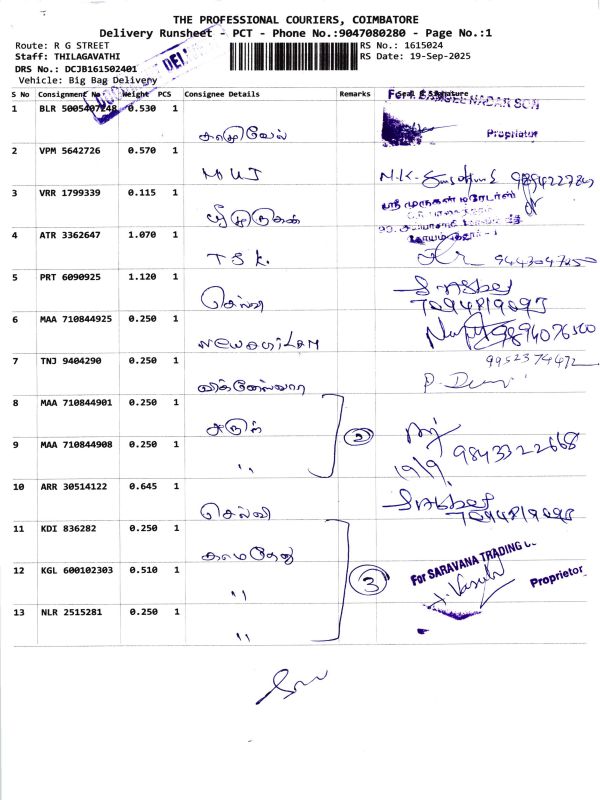 THE PROFESSIONAL COURIERS, COIMBATORE
Delivery Runsheet - PCT - Phone No.:9047080280 - Page No.:1
Route: R G STREET
RS No.: 1615024
Staff: THILAGAVATHI
RS Date: 19-Sep-2025
DRS No.: DCJB161502401
Vehicle: Big Bag Delivery
S No Consignment No Weight PCS Consignee Details Remarks Seal & Signature
1 BLR 5005407248 0.530 1
Proprietor
2 VPM 5642726 0.570 1
MUJ M.K.
3 VRR 1799339 0.115 1
ஸ்ரீ முருகன் டிரேடர்ஸ்
4 ATR 3362647 1.070 1
T S K.
5 PRT 6090925 1.120 1
செல்வி
6 MAA 710844925 0.250 1
9894076500
7 TNJ 9404290 0.250 1 9952374472
விக்னேஸ்வரா P. Devi
8 MAA 710844901 0.250 1
அருள் 2
9 MAA 710844908 0.250 1 9843322668
" 19/9
10 ARR 30514122 0.645 1
செல்வி
11 KDI 836282 0.250 1
காமதேனு For SARAVANA TRADING
12 KGL 600102303 0.510 1 3
" Proprietor
13 NLR 2515281 0.250 1
"